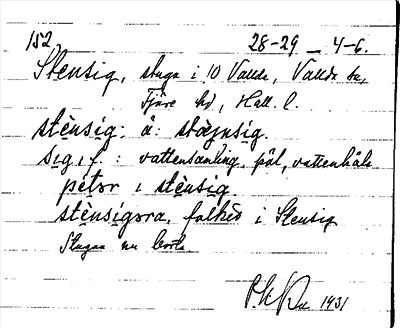 152. 28-29 _ 4-6.
Stensig, stuga i 10 Vallda, Vallda sn,
Fjäre hd, Hall. l.
stènsig. å: stäynsig.
sig, f. : vattensamling, pöl, vattenhål.
pétər i stènsig.
stènsigəra, folket i Stensig
Stugan nu borta
1931